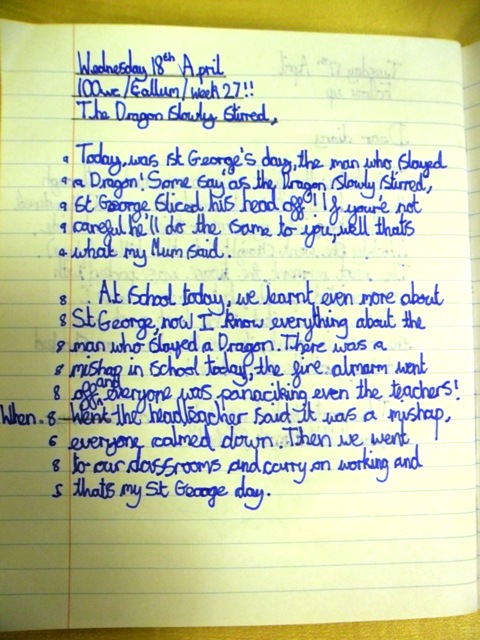 Wednesday 18th April
100wc/Gallum/week 27!!
The Dragon Slowly Stirred,
9 Today, was St George's day, the man who slayed
9 a Dragon! Some say 'as the Dragon slowly stirred,
9 St George sliced his head off'! If your'e not
9 careful he'll do the same to you, well thats
4 what my Mum said.
8 . At school today, we learnt even more about
8 St George, now I know everything about the
8 man who slayed a Dragon. There was a
8 mishap in school today, the fire almarm went
8 off, and everyone was panaciking even the teachers!
When. 8 Went the headteacher said it was a mishap,
6 everyone calmed down. Then we went
8 to our classrooms and carry on working and
5 thats my St George day.